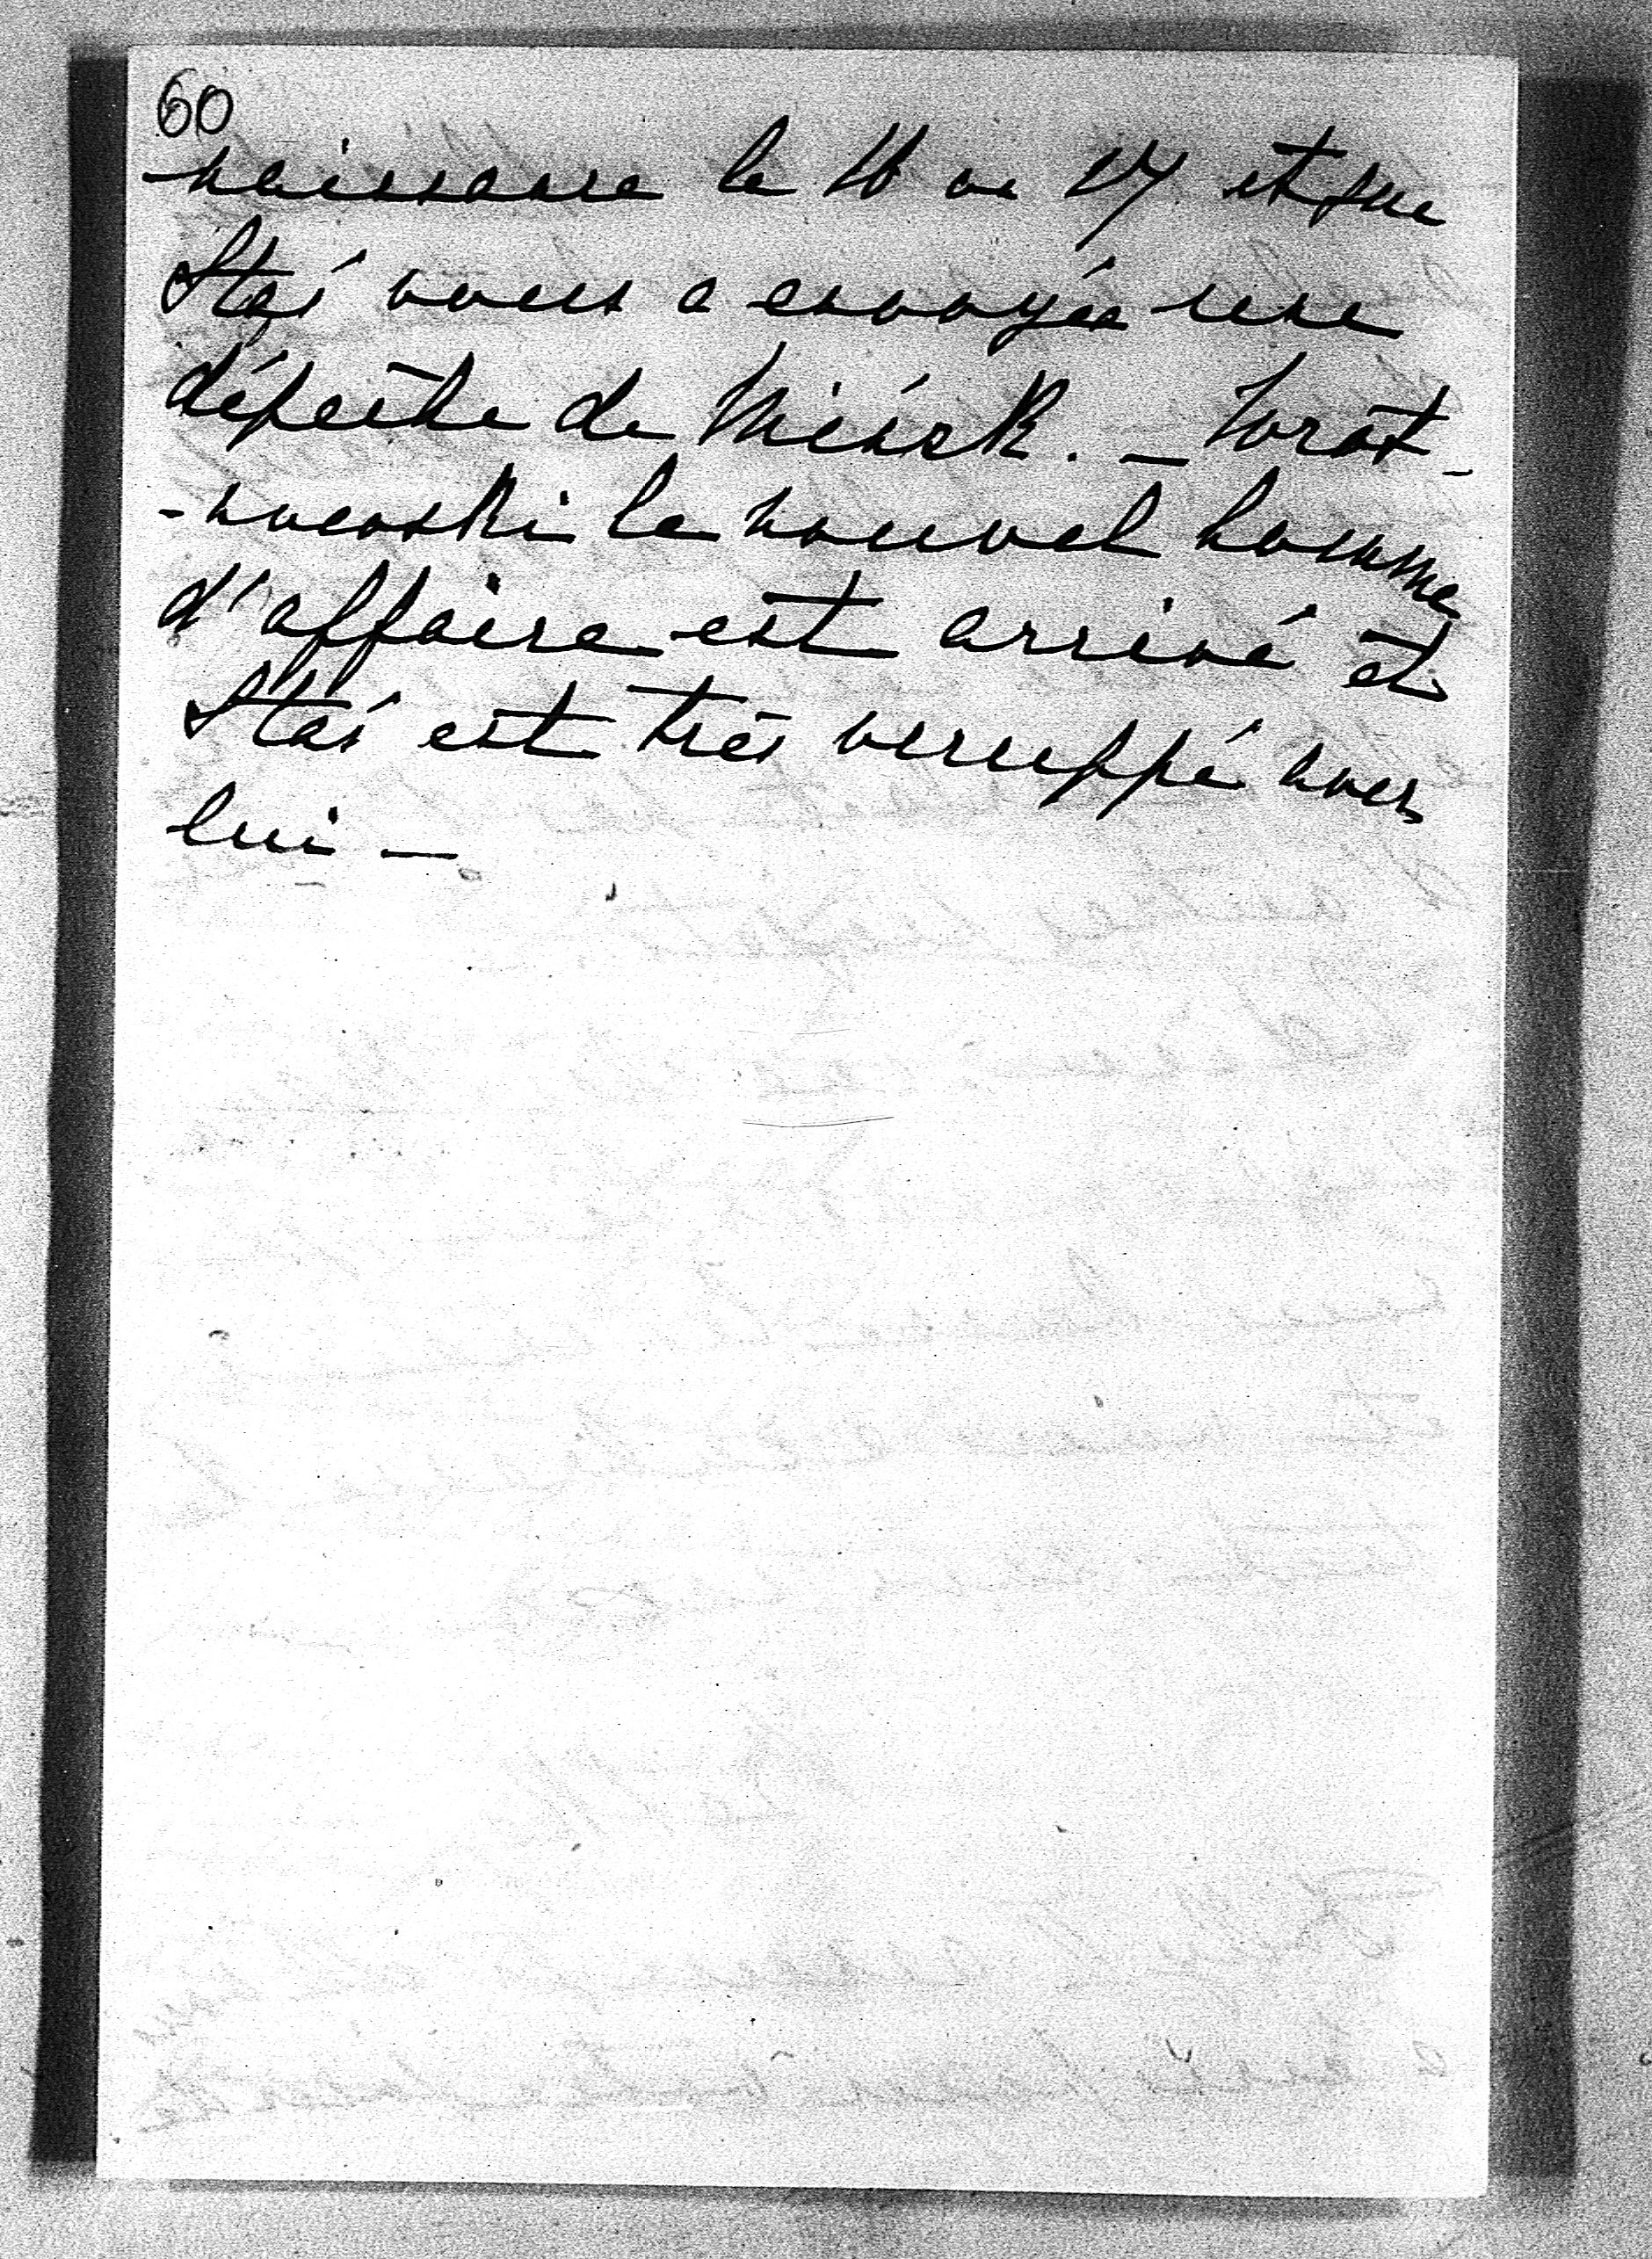 60
-naissance le 16 ou 17 et que
Staś vous a envoyée une
dépêche de Mińsk. _ Wrot-
-nowski le nouvel homme
d'affaire est arrivé et
Staś est très occuppé avec
lui _